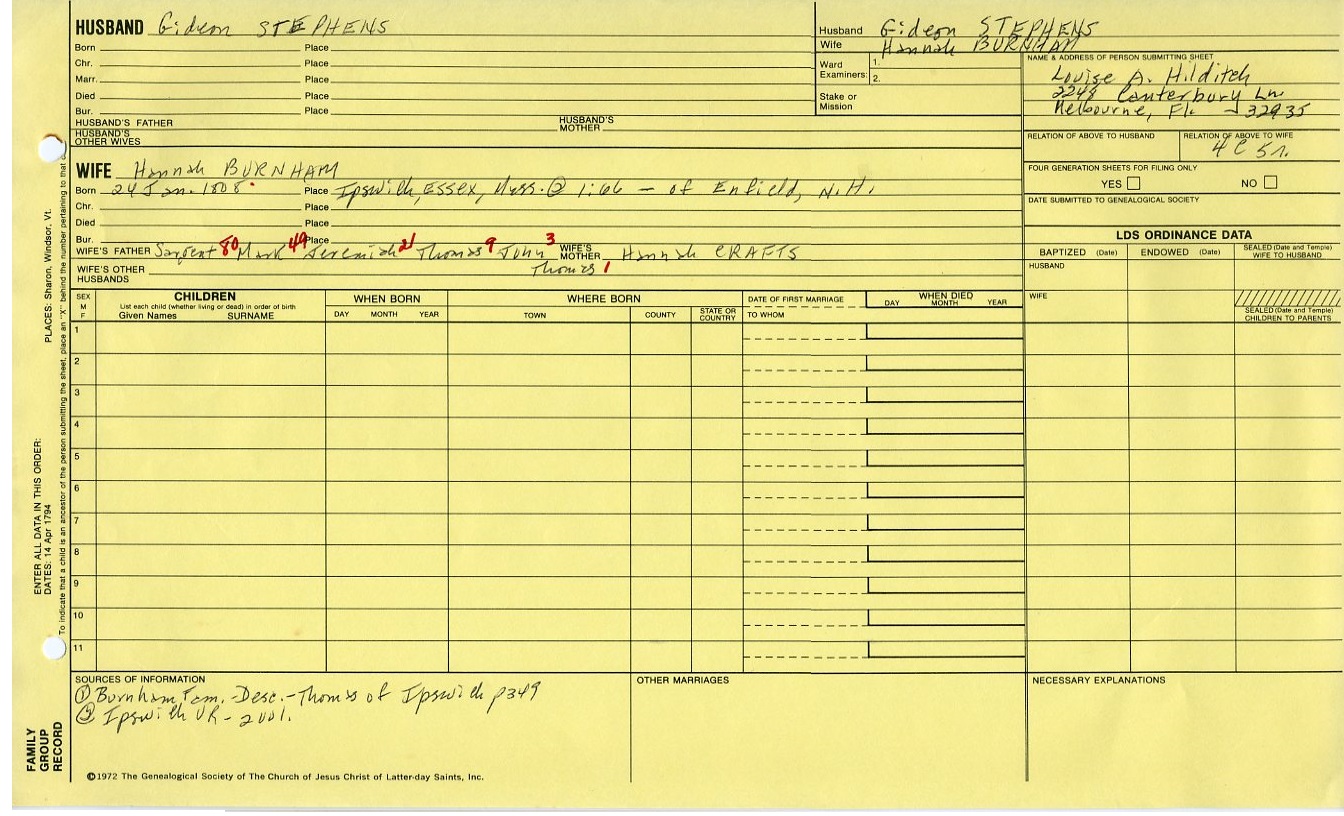 HUSBAND Gideon STEPHENS
Born Place
Chr. Place
Marr. Place
Died Place
Bur. Place
HUSBAND'S FATHER HUSBAND'S MOTHER
HUSBAND'S OTHER WIVES
Husband Gideon STEPHENS
Wife Hannah BURNHAM
Ward Examiners: 1.
2.
Stake or Mission
NAME & ADDRESS OF PERSON SUBMITTING SHEET
Louise A. Hilditch
2248 Canterbury Ln.
Melbourne, Fl. - 32935
RELATION OF ABOVE TO HUSBAND RELATION OF ABOVE TO WIFE
4C5r.
FOUR GENERATION SHEETS FOR FILING ONLY
YES NO
DATE SUBMITTED TO GENEALOGICAL SOCIETY
WIFE Hannah BURNHAM
Born 24 Jan. 1808 Place Ipswich, Essex, Mass. @ 1:66 - of Enfield, N.H.
Chr. Place
Died Place
Bur. Place
WIFE'S FATHER Sargent 80 Mark 49 Jeremiah 21 Thomas 9 John 3 WIFE'S MOTHER Hannah CRAFTS
WIFE'S OTHER HUSBANDS Thomas 1
LDS ORDINANCE DATA
BAPTIZED (Date) ENDOWED (Date) SEALED (Date and Temple) WIFE TO HUSBAND
HUSBAND
WIFE
SEALED (Date and Temple) CHILDREN TO PARENTS
SEX M F
CHILDREN
List each child (whether living or dead) in order of birth
Given Names SURNAME
WHEN BORN
DAY MONTH YEAR
WHERE BORN
TOWN COUNTY STATE OR COUNTRY
DATE OF FIRST MARRIAGE
TO WHOM
WHEN DIED
DAY MONTH YEAR
1
2
3
4
5
6
7
8
9
10
11
SOURCES OF INFORMATION
① Burnham Fam. - Desc. - Thomas of Ipswich p349
② Ipswich VR - 2001.
OTHER MARRIAGES
NECESSARY EXPLANATIONS
©1972 The Genealogical Society of The Church of Jesus Christ of Latter-day Saints, Inc.
FAMILY GROUP RECORD
ENTER ALL DATA IN THIS ORDER:
DATES: 14 Apr 1794 PLACES: Sharon, Windsor, Vt.
To indicate that a child is an ancestor of the person submitting the sheet, place an "X" behind the number pertaining to that